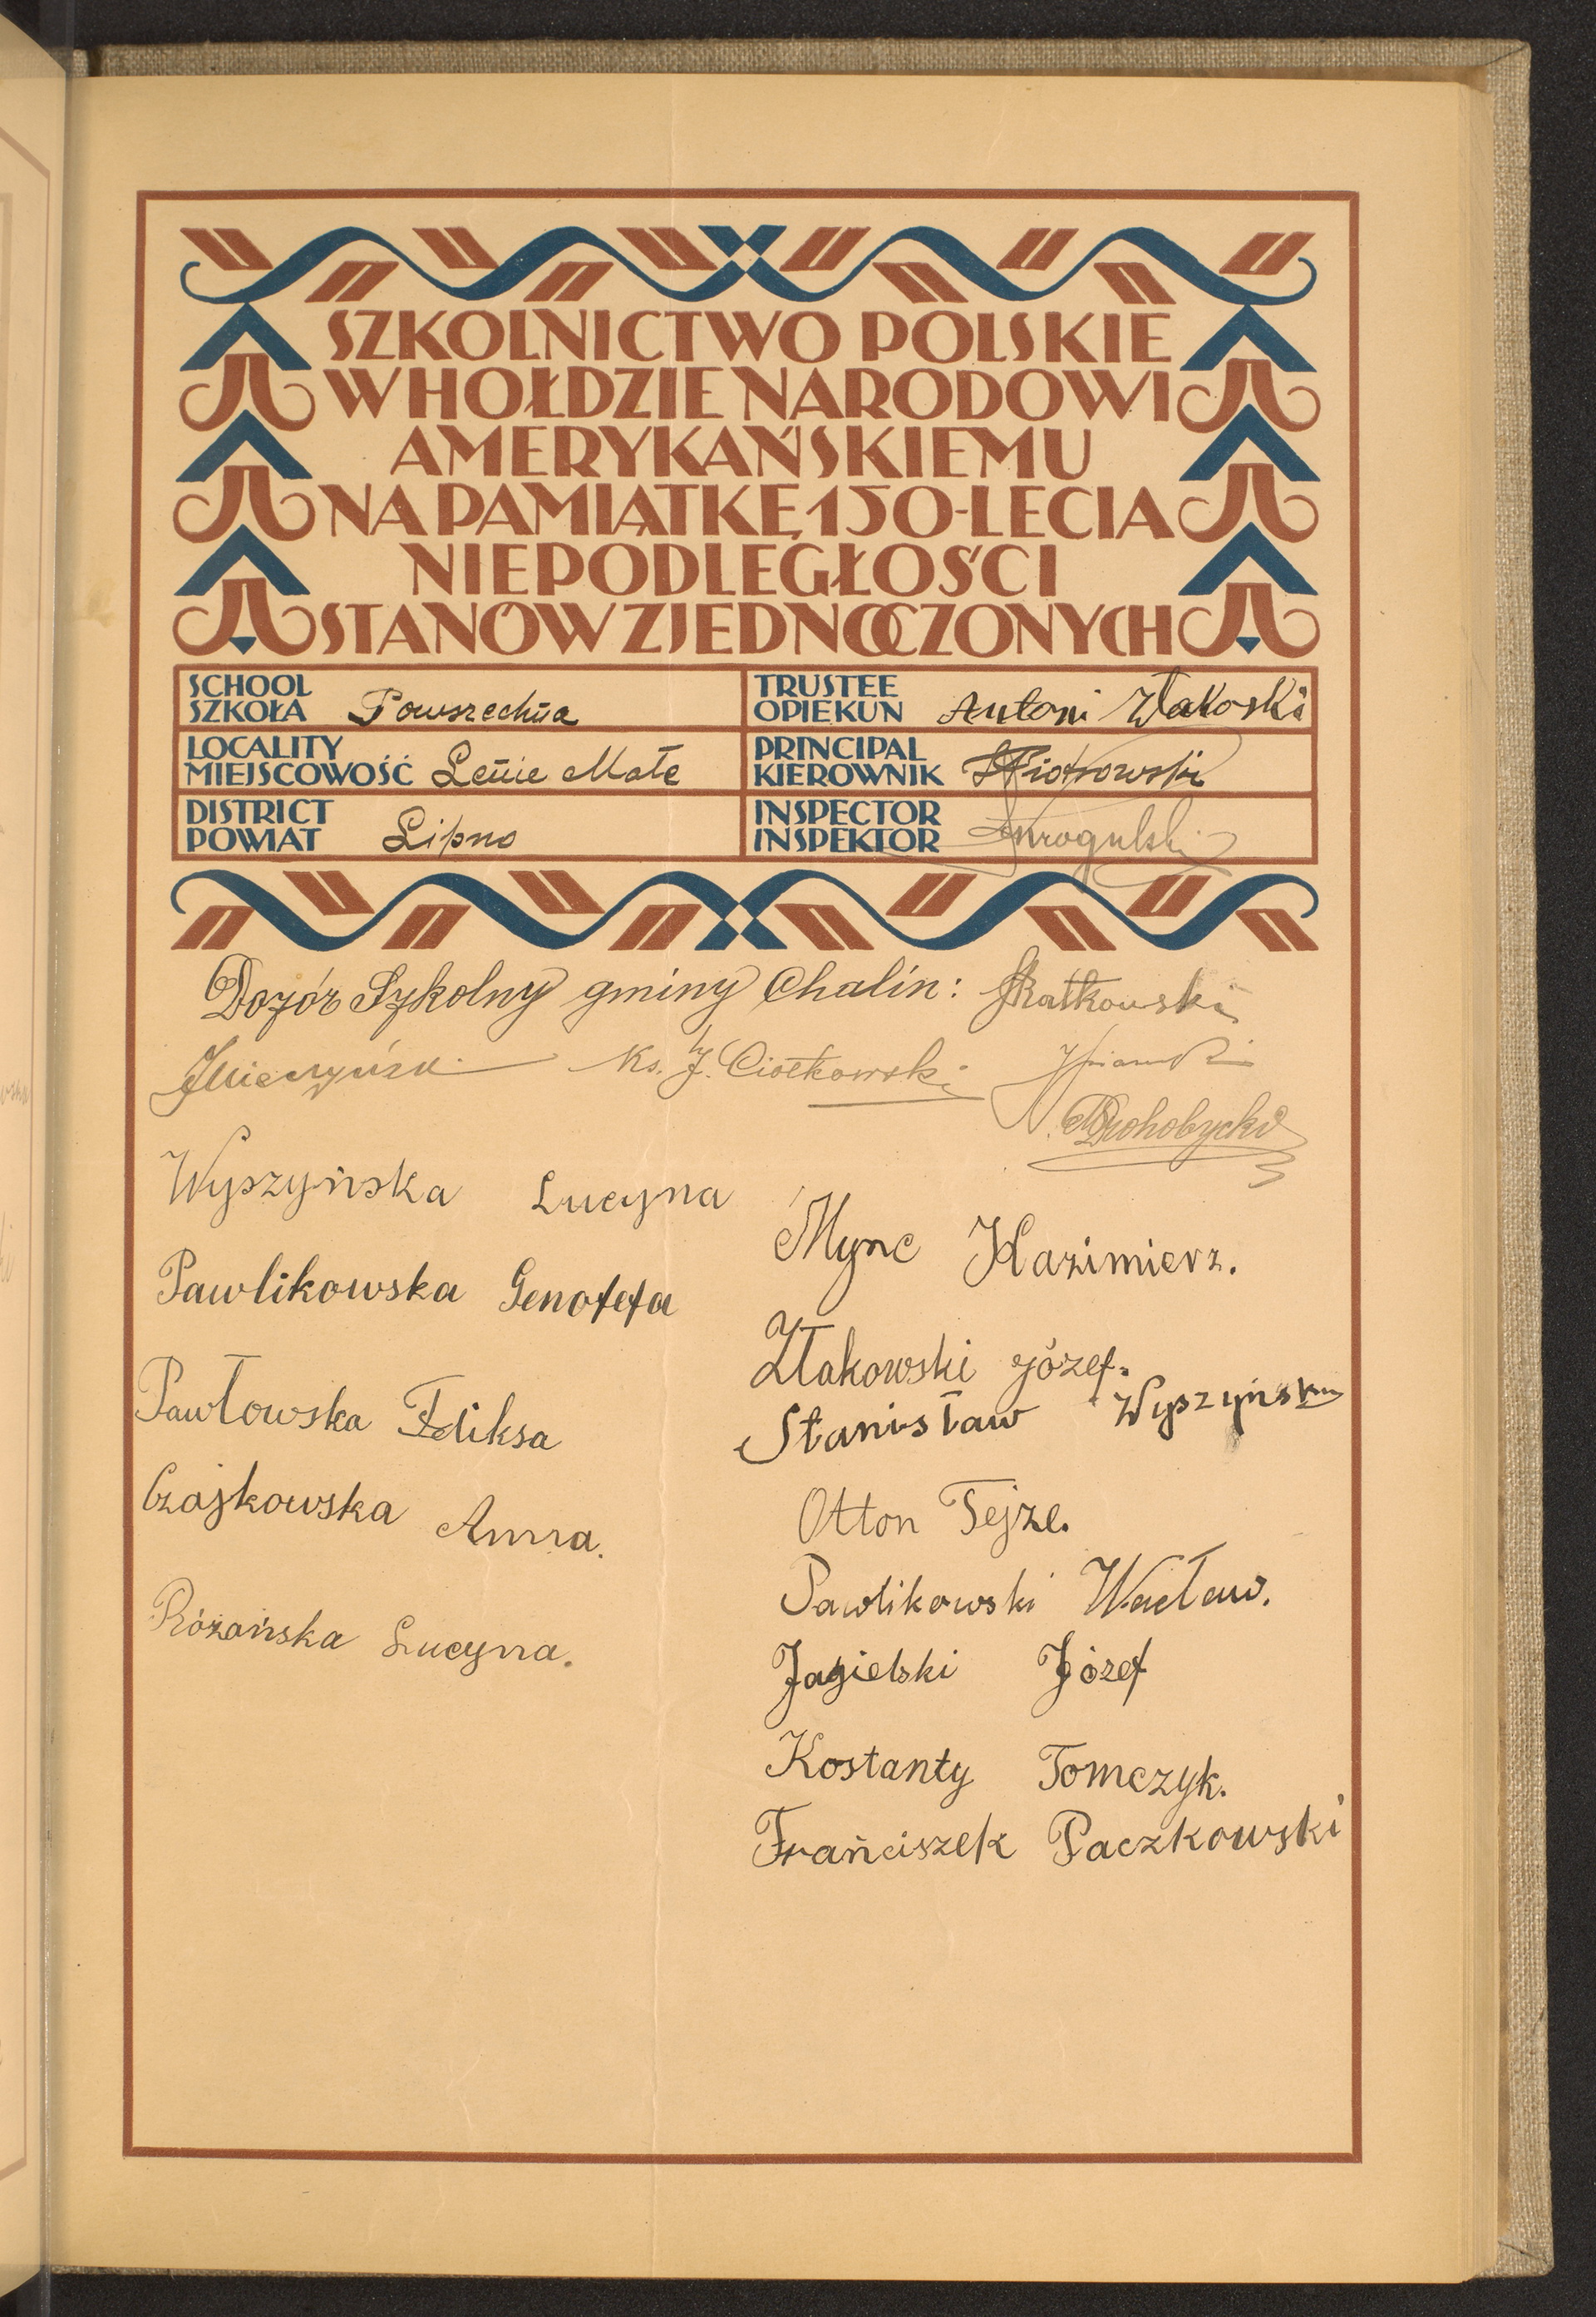 SZKOLNICTWO POLSKIE
W HOŁDZIE NARODOWI
AMERYKAŃSKIEMU
NA PAMIĄTKĘ 150-LECIA
NIEPODLEGŁOŚCI
STANÓW ZJEDNOCZONYCH
SCHOOL
SZKOŁA Powszechna
TRUSTEE
OPIEKUN Antoni
LOCALITY
MIEJSCOWOŚĆ Lenie Małe
PRINCIPAL
KIEROWNIK Piotrowski
DISTRICT
POWIAT Lipno
INSPECTOR
INSPEKTOR
Dozór Szkolny gminy Chalin: Ratkowski
Ks. J. Ciołkowski
Drohobycki
Wyszyńska Lucyna
Pawlikowska Genofefa
Pawłowska Feliksa
Czajkowska Anna.
Różańska Lucyna.
Mync Kazimierz.
Złakowski Józef.
Stanisław Wyszyński
Otton Tejze.
Pawlikowski Wacław.
Jagielski Józef
Kostanty Tomczyk.
Frańciszek Paczkowski